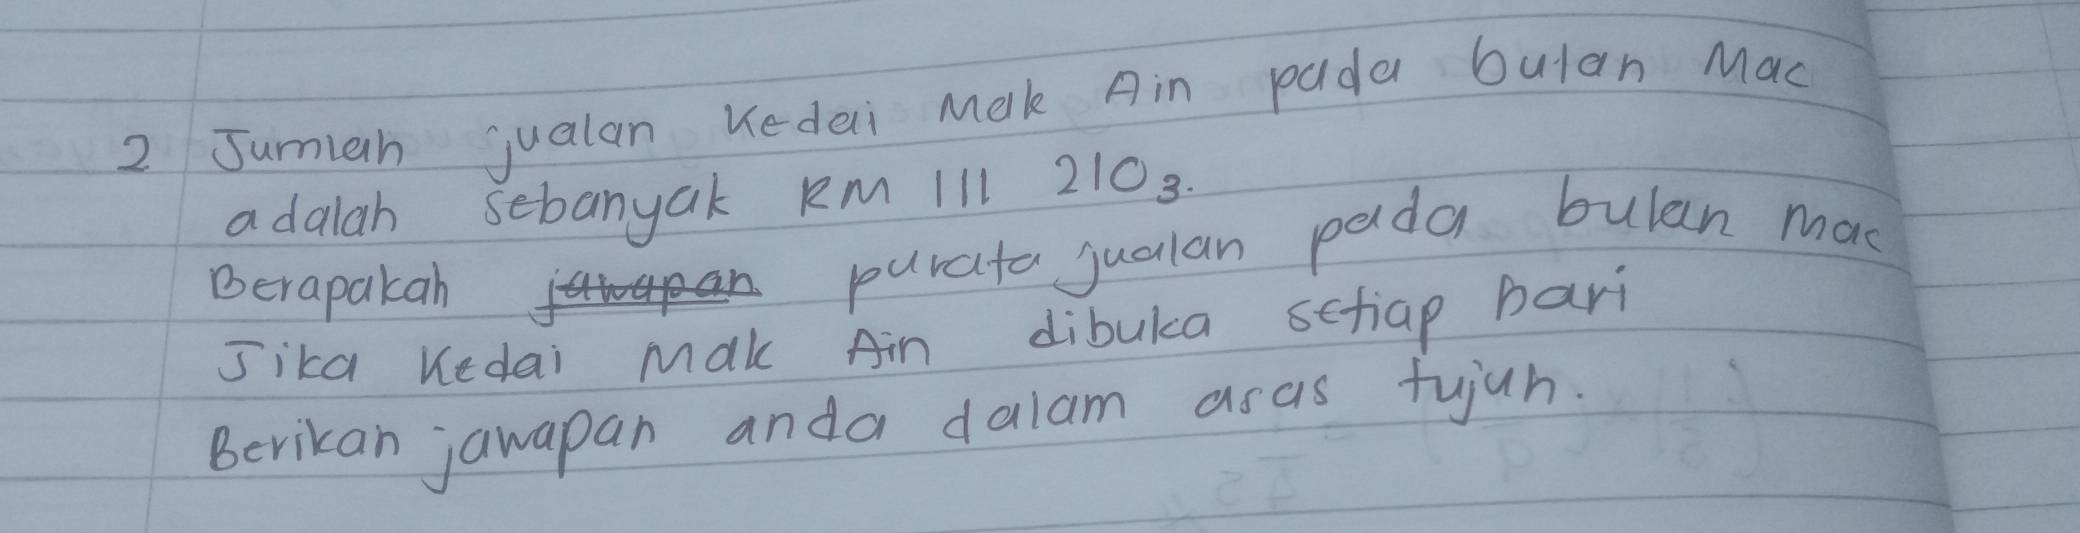 2 Jumlah jualan Kedai Mak Ain pada bulan Mac
adalah sebanyak RM 111 210₃.
Berapakah ~~jawapan~~ purata jualan pada bulan mac
Jika Kedai Mak Ain dibuka setiap hari
Berikan jawapan anda dalam asas tujuh.